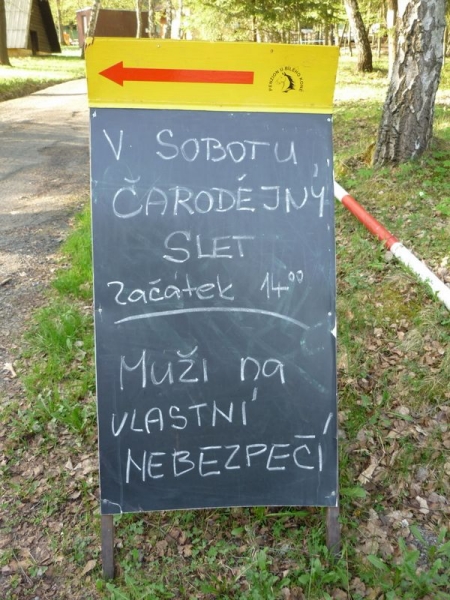 PENZION U BÍLÉHO KONĚ
V SOBOTU
ČARODĚJNÝ
SLET
Začátek 14⁰⁰
MUŽI na
VLASTNÍ
NEBEZPEČÍ